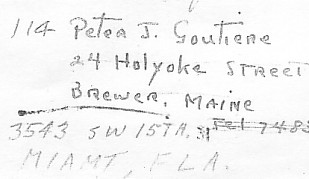 114 Peter J. Goutiere
24 Holyoke Street
Brewer, Maine
3543 SW 15TH. Tel 7483
MIAMI, FLA.